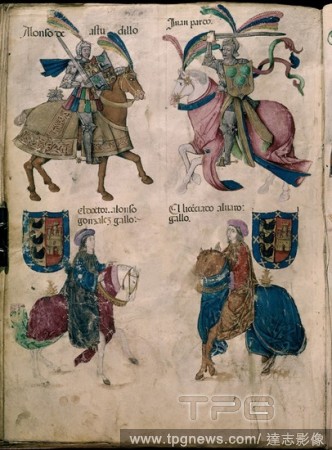 Alonso de astudillo
Juan pardo
El doctor. alonso
gonzalez gallo:~
El licēciado alvaro:
gallo.
TPG
www.tpgnews.com/達志影像